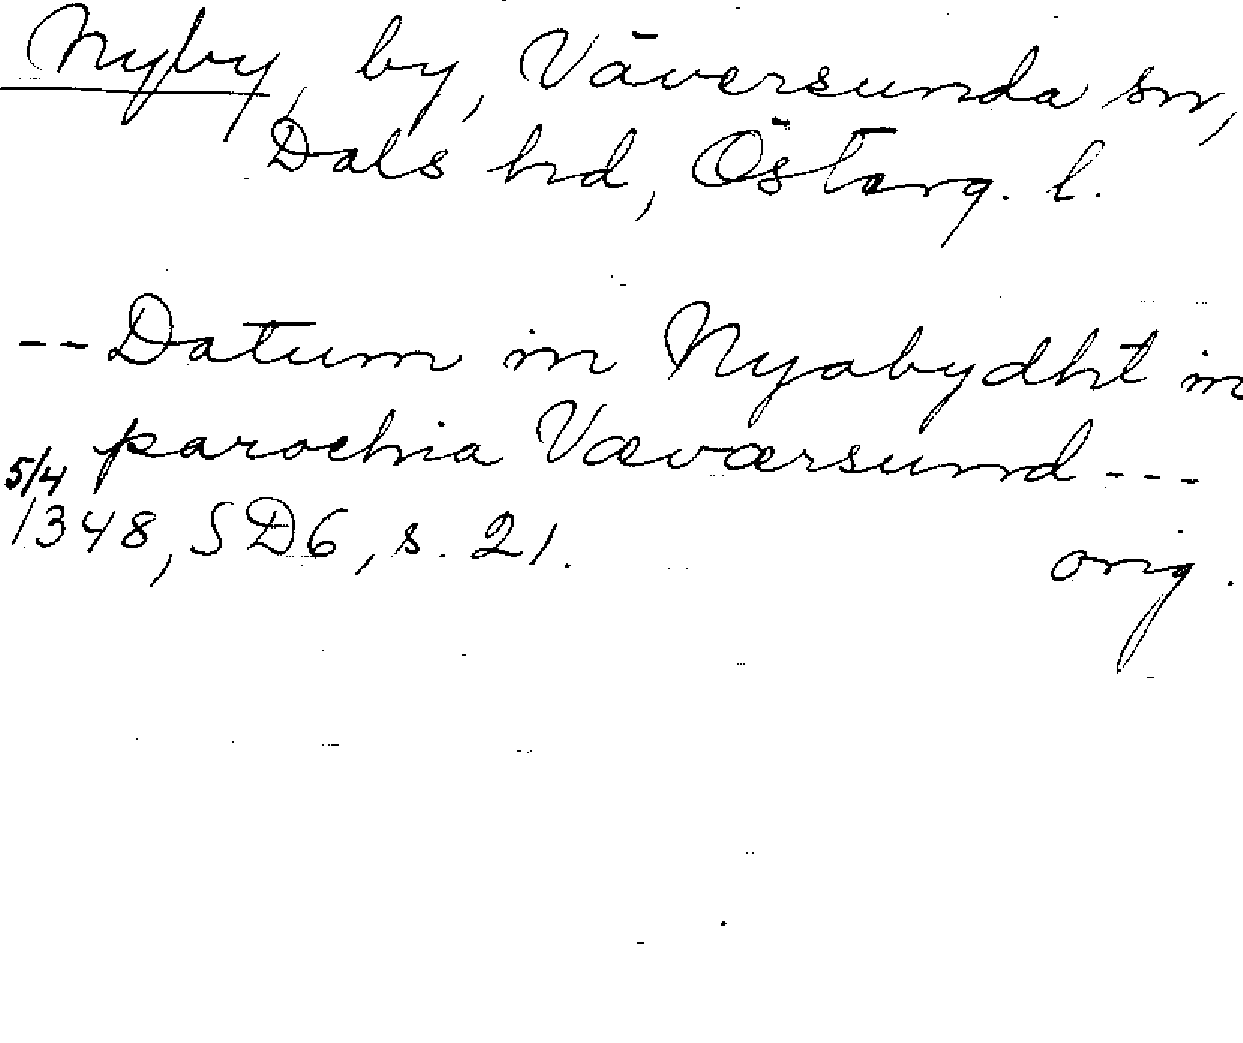 Nyby, by, Väversunda sn,
Dals hd, Österg. l.
-- Datum in Nyabydht in
parochia Væværsund ---
5/4
1348, SD6, s. 21.
orig.